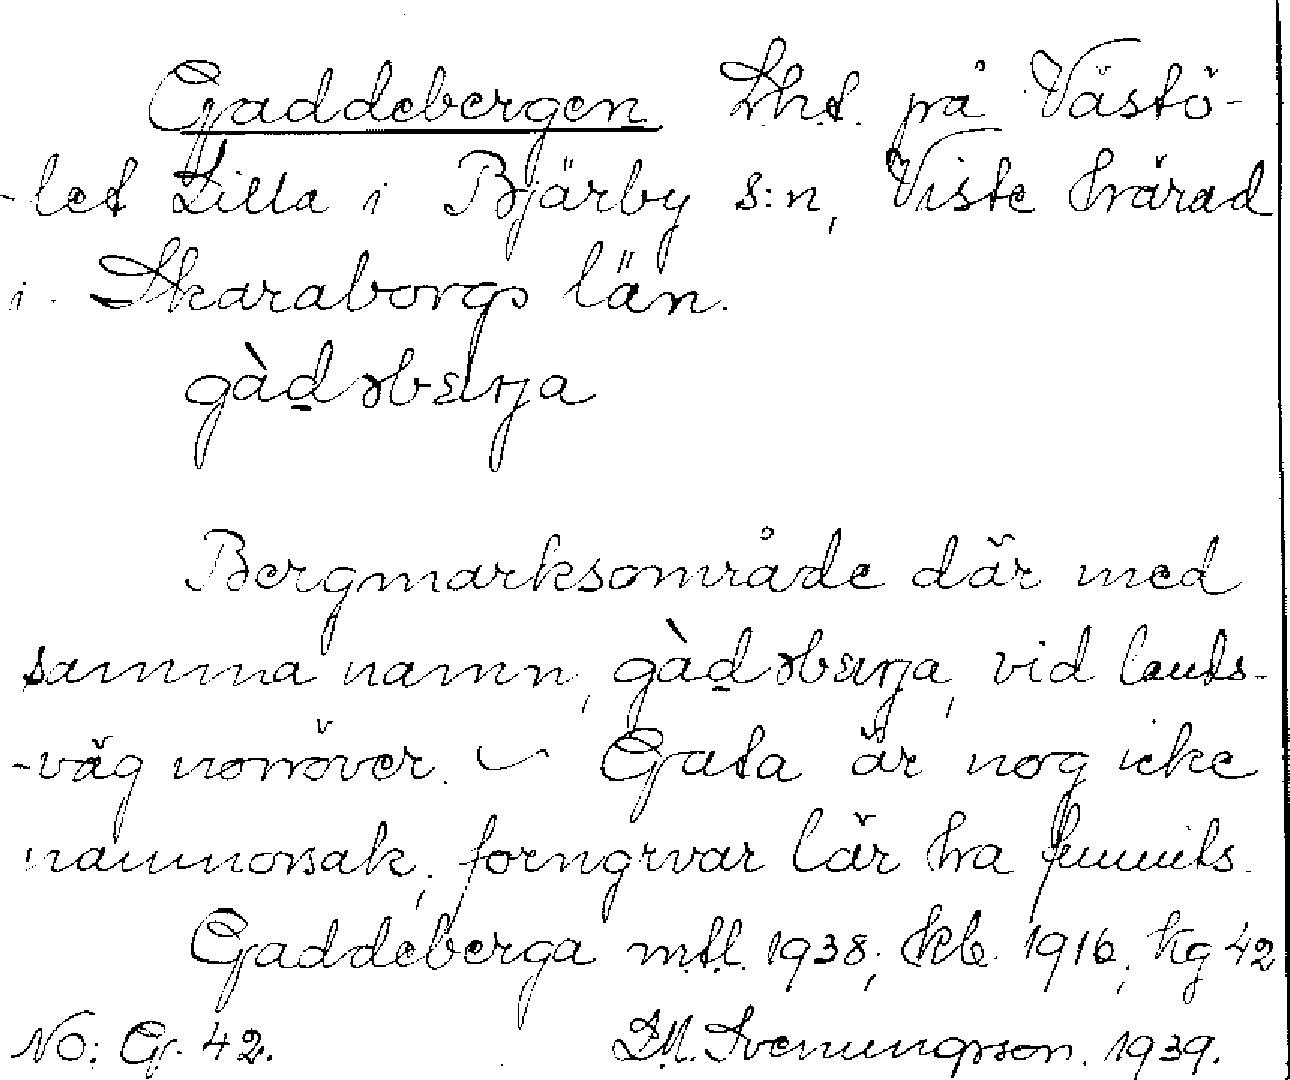 Gaddebergen Lht. på Västö-
-let Lilla i Bjärby s:n, Viste härad
i Skaraborgs län.
gàd̲əbærja
Bergmarksområde där med
samma namn, gàd̲əbærja, vid lands-
-väg norröver. – Gata är nog icke
namnorsak, forngrvar lär ha funnits.
Gaddeberga mtl. 1938; kb. 1916, Kg 42
No: G. 42. D.M. Svenungsson. 1939.